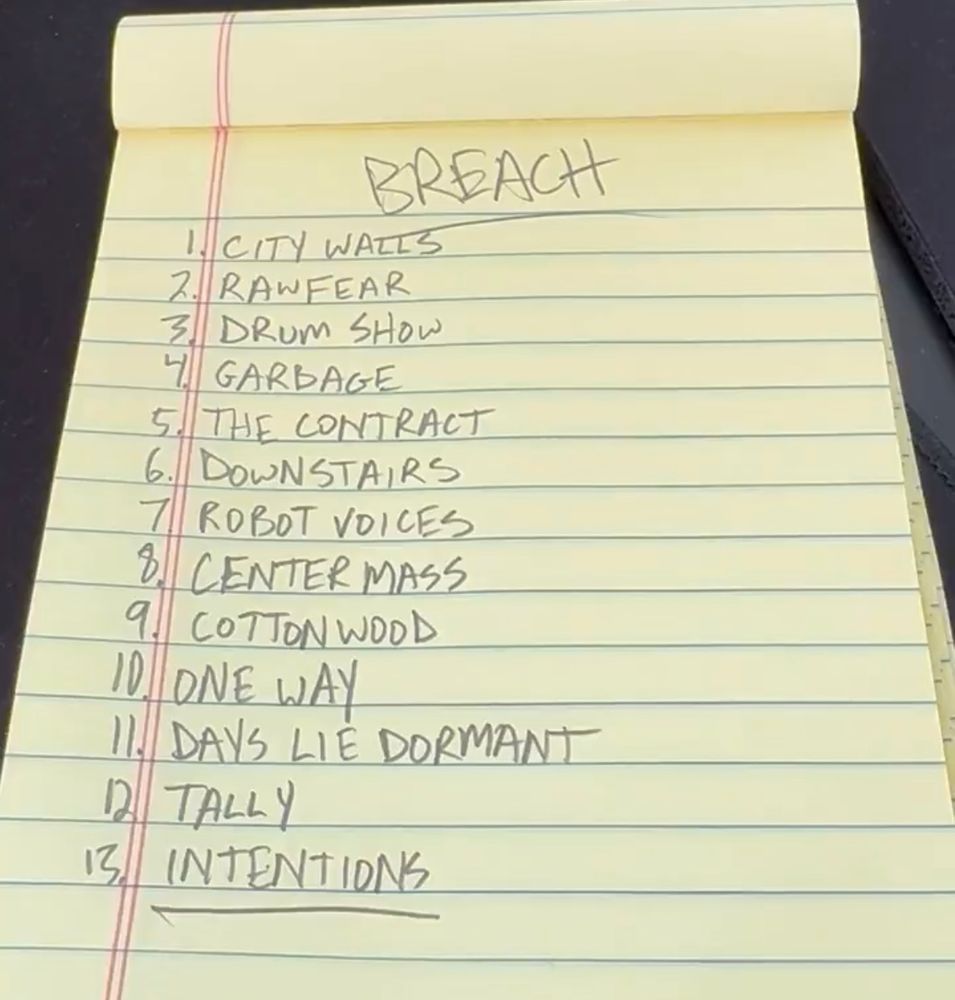 BREACH
1. CITY WALLS
2. RAWFEAR
3. DRUM SHOW
4. GARBAGE
5. THE CONTRACT
6. DOWNSTAIRS
7. ROBOT VOICES
8. CENTER MASS
9. COTTONWOOD
10. ONE WAY
11. DAYS LIE DORMANT
12. TALLY
13. INTENTIONS